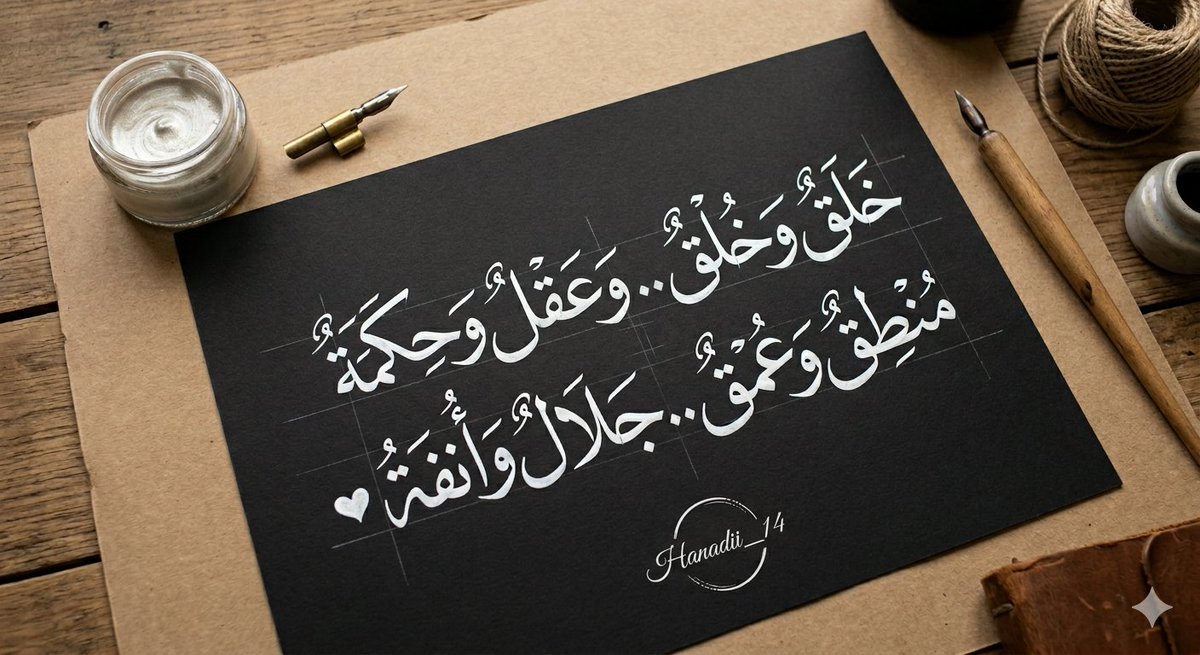 خَلَقٌ وَخُلْقٌ.. وَعَقْلٌ وَحِكمَةٌ
مُنْطِقٌ وَعُمْقٌ.. جَلَالٌ وَأُنفَةٌ ♥
Hanadii_14